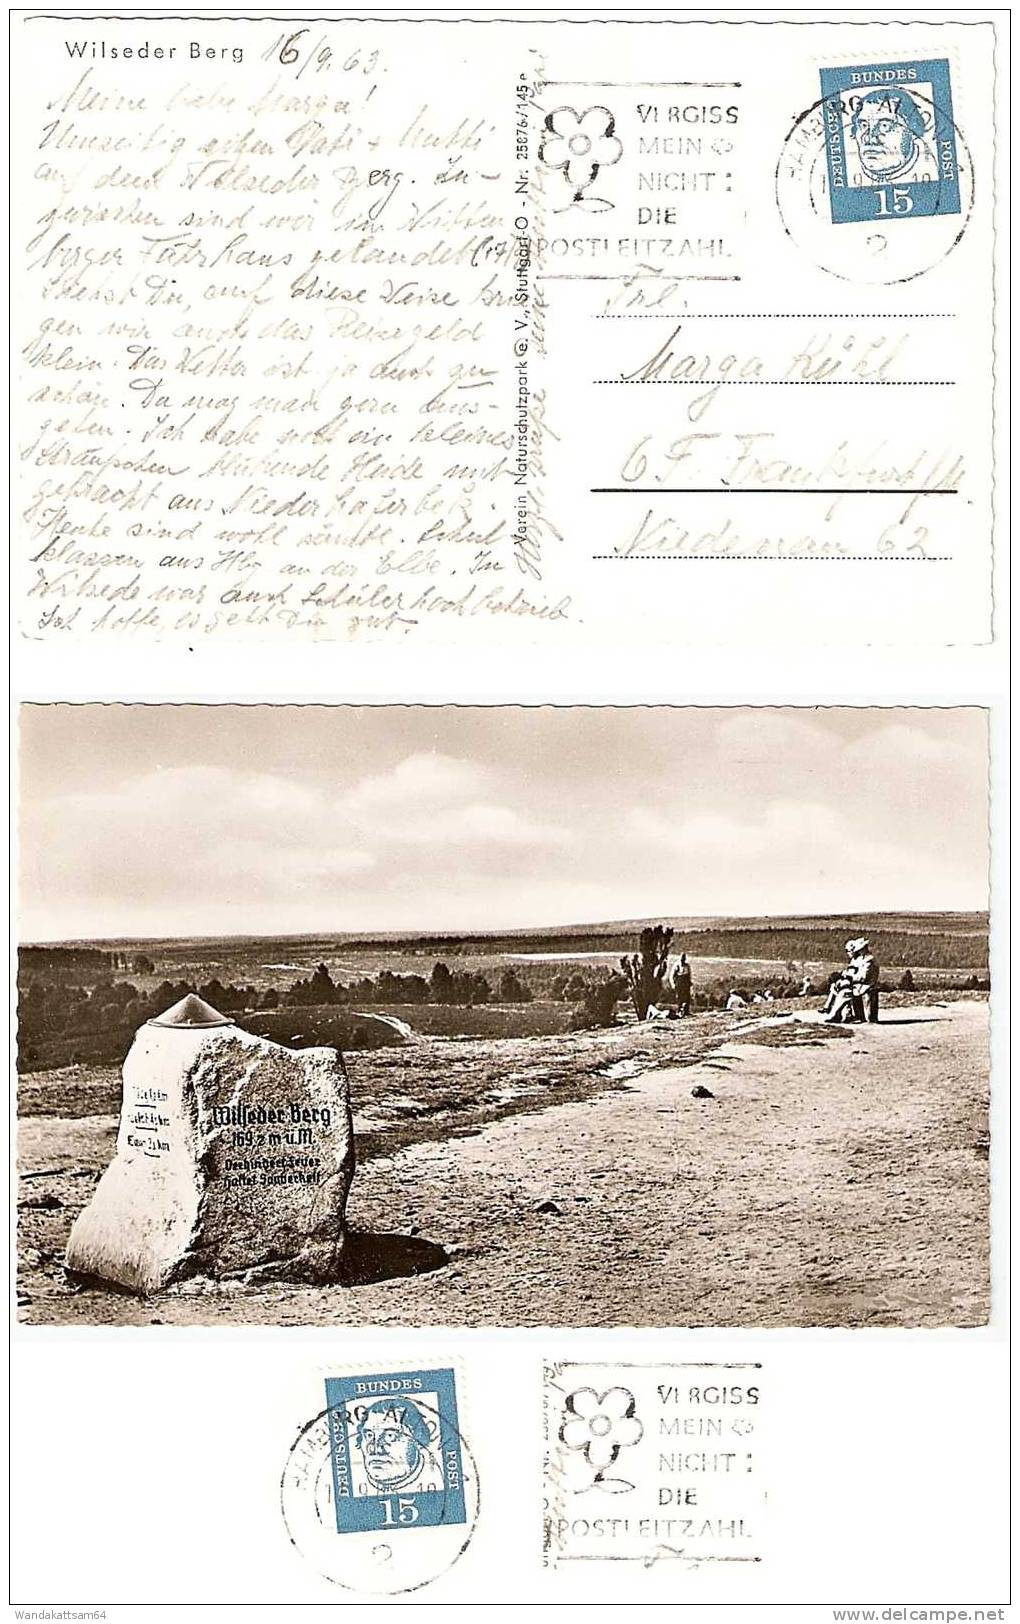 Wilseder Berg 16/9.63.
Meine liebe Marga!
Unzeitig sitzen Vati + Mutti
auf dem Wilseder Berg. In-
zwischen sind wir im Witten-
berger Fährhaus gelandet (17/9)
Siehst Du, auf diese Weise krie-
gen wir auch das Reisegeld
klein. Das Wetter ist ja auch zu
schön. Da mag man gern aus-
geben. Ich habe noch ein kleines
Sträußchen blühende Heide mit-
gebracht aus Niederhaverbek.
Heute sind wohl sämtl. Schul-
klassen aus Hbg an der Elbe. In
Wilsede war auch Schülerhochbetrieb.
Ich hoffe, es geht Dir gut.
Herzl. Grüße
Verein Naturschutzpark e. V., Stuttgart-O - Nr. 25876/145 e
VERGISS
MEIN
NICHT:
DIE
POSTLEITZAHL
HAMBURG-ALTONA 1
2
DEUTSCHE
BUNDES
POST
15
Frl.
Marga Kühl
6 F Frankfurt/M
Niedenau 62
Wilseder Berg
169,2 m ü.M.
Verhindert Feuer
Haltet Sauberkeit
HAMBURG-ALTONA 1
2
DEUTSCHE
BUNDES
POST
15
VERGISS
MEIN
NICHT:
DIE
POSTLEITZAHL
Wandakattsam64
www.delcampe.net